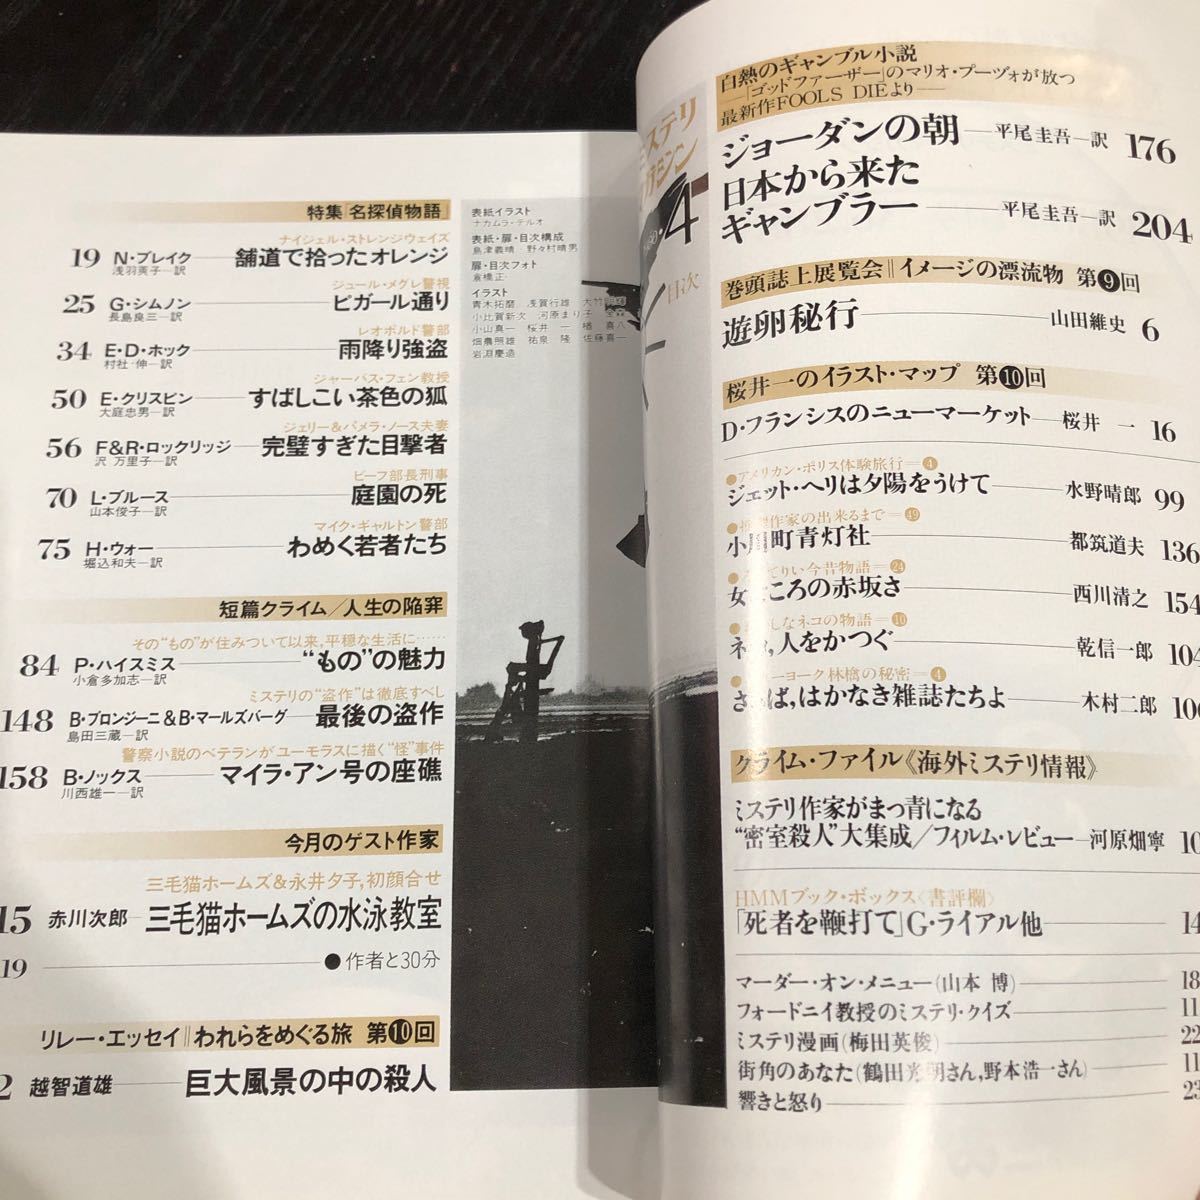 特集「名探偵物語」
ナイジェル・ストレンジウェイズ
19 N・ブレイク 舗道で拾ったオレンジ
浅羽莢子―訳
ジュール・メグレ警視
25 G・シムノン ピガール通り
長島良三―訳
レオポルド警部
34 E・D・ホック 雨降り強盗
村社 伸―訳
ジャーバス・フェン教授
50 E・クリスピン すばしこい茶色の狐
大庭忠男―訳
ジェリー&パメラ・ノース夫妻
56 F&R・ロックリッジ 完璧すぎた目撃者
沢 万里子―訳
ビーフ部長刑事
70 L・ブルース 庭園の死
山本俊子―訳
マイク・ギャルトン警部
75 H・ウォー わめく若者たち
堀込和夫―訳
短篇クライム/人生の陥穽
その“もの”が住みついて以来,平穏な生活に……
84 P・ハイスミス “もの”の魅力
小倉多加志―訳
ミステリの“盗作”は徹底すべし
148 B・プロンジーニ&B・マールズバーグ 最後の盗作
島田三蔵―訳
警察小説のベテランがユーモラスに描く“怪”事件
158 B・ノックス マイラ・アン号の座礁
川西雄一―訳
今月のゲスト作家
三毛猫ホームズ&永井夕子,初顔合せ
15 赤川次郎 三毛猫ホームズの水泳教室
19 ●作者と30分
リレー・エッセイ‖われらをめぐる旅 第❿回
2 越智道雄 巨大風景の中の殺人
表紙イラスト
ナカムラ・テルオ
表紙・扉・目次構成
島津義晴・野々村晴男
扉・目次フォト
倉橋正
イラスト
青木拓磨 浅賀行雄
小比賀新次 河原まり子
小山真一 桜井 一 楢 喜八
畑農照雄 祐泉 隆 佐藤喜一
岩淵慶造
ミステリ
マガジン
4
目次
白熱のギャンブル小説
―「ゴッドファーザー」のマリオ・プーヅォが放つ
最新作FOOLS DIEより―
ジョーダンの朝―平尾圭吾―訳 176
日本から来た
ギャンブラー―平尾圭吾―訳 204
巻頭誌上展覧会‖イメージの漂流物 第❾回
遊卵秘行 山田維史 6
桜井一のイラスト・マップ 第❿回
D・フランシスのニューマーケット―桜井 一 16
●アメリカン・ポリス体験旅行=❹
ジェット・ヘリは夕陽をうけて―水野晴郎 99
作家の出来るまで=㊾
町青灯社 都筑道夫 136
りい今昔物語=㉔
ころの赤坂さ 西川清之 154
しなネコの物語=❿
人をかつぐ 乾信一郎 104
ーヨーク林檎の秘密=❹
ば,はかなき雑誌たちよ―木村二郎
クライム・ファイル《海外ミステリ情報》
ミステリ作家がまっ青になる
“密室殺人”大集成/フィルム・レビュー―河原畑寧 10
HMMブック・ボックス〈書評欄〉
「死者を鞭打て」G・ライアル他 14
マーダー・オン・メニュー(山本 博) 18
フォードニイ教授のミステリ・クイズ 11
ミステリ漫画(梅田英俊) 22
街角のあなた(鶴田光明さん,野本浩一さん) 11
響きと怒り 23